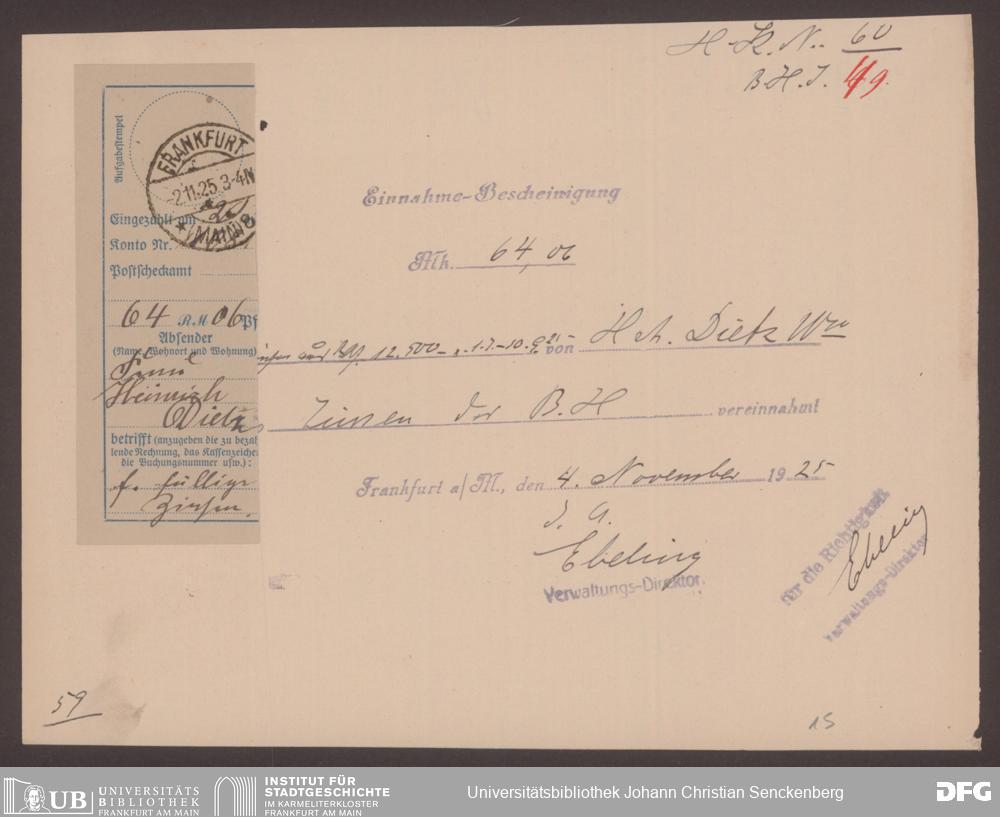 H.K.N. 60
B.H.J. 49.
Aufgabestempel
FRANKFURT
-2.11.25.3-4N
* (MAIN) 8
Eingezahlt am
Konto Nr.
Postscheckamt
64 RM 06 Pf
Absender
(Name, Wohnort und Wohnung)
Frau
Heinrich
Dietz
betrifft (anzugeben die zu bezah
lende Rechnung, das Kassenzeichen
die Buchungsnummer usw.):
f. fällige
Zinsen.
Einnahme-Bescheinigung
Mk. 64,06
12.500 von Hch. Dietz Wwe
Zinsen der B.H vereinnahmt
Frankfurt a/M., den 4. November 1925
J. A.
Ebeling
Verwaltungs-Direktor.
für die Richtigkeit
Ebeling
Verwaltungs-Direktor
59
15
UB UNIVERSITÄTS
BIBLIOTHEK
FRANKFURT AM MAIN
INSTITUT FÜR
STADTGESCHICHTE
IM KARMELITERKLOSTER
FRANKFURT AM MAIN
Universitätsbibliothek Johann Christian Senckenberg
DFG